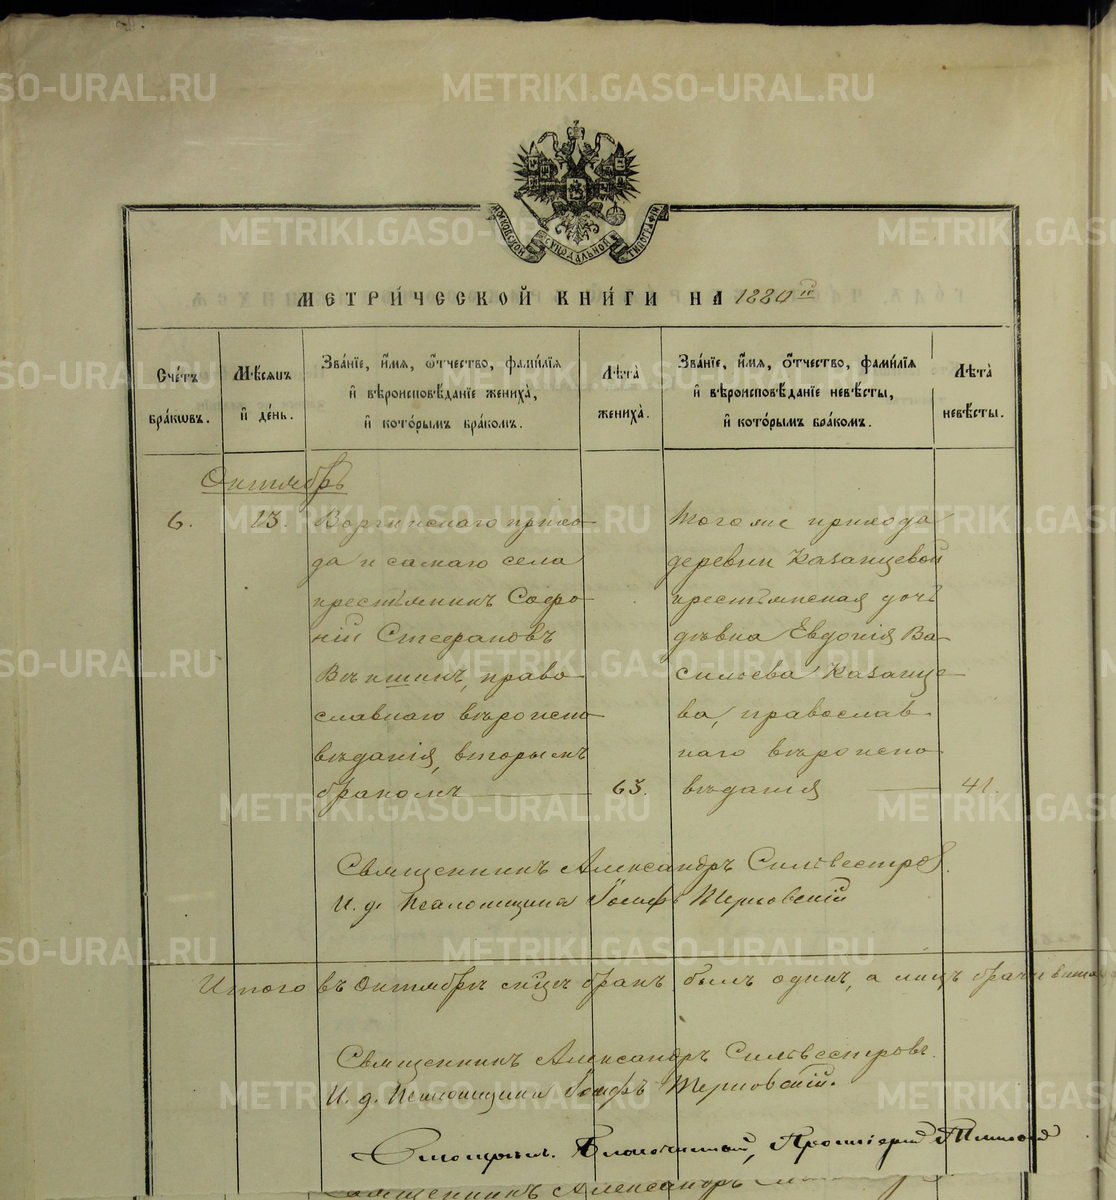 METRIKI.GASO-URAL.RU
МОСКОВСКОЙ СѴНОДАЛЬНОЙ ТИПОГРАФІИ
МЕТРИ́ЧЕСКОЙ КНИ́ГИ НА 1880й
Сче́тъ бра́кѡвъ.
Мѣ́сѧцъ и҆ де́нь.
Зва́нїе, и҆́мѧ, ѻ҆́тчество, фами́лїѧ и҆ вѣроисповѣ́данїе жениха̀, и҆ кото́рымъ бра́комъ.
Лѣ́та жениха̀.
Зва́нїе, и҆́мѧ, ѻ҆́тчество, фами́лїѧ и҆ вѣроисповѣ́данїе невѣ́сты, и҆ кото́рымъ бра́комъ.
Лѣ́та невѣ́сты.
Октябрь
6.
13.
Воргинскаго прихо-
да и самаго села
крестьянинъ Софро-
ній Стефановъ
Вѣкшинъ, право-
славнаго вѣроиспо-
вѣданія, вторымъ
бракомъ
63.
Того же прихода
деревни Казанцевой
крестьянская дочь
дѣвка Евдокія Ва-
сильева Казанце-
ва, православ-
наго вѣроиспо-
вѣданія
41.
Священникъ Александръ Сильвестровъ.
И. д. Псаломщика Іосифъ Терновскій
Итого въ Октябрѣ мцѣ бракъ былъ одинъ, а лицъ
Священникъ Александръ Сильвестровъ.
И. д. Псаломщика Іосифъ Терновскій.
Смотрѣлъ. Благочинный, Протоіерей
Священникъ Александръ